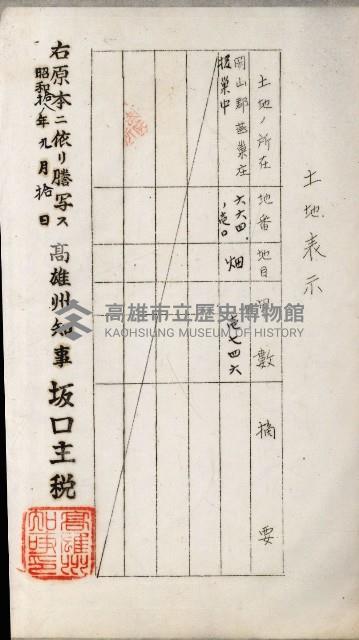 土地表示
土地ノ所在 地番 地目 甲數 摘要
岡山郡燕巢庄 六六四ノ壱〇 畑 壱七四六
援巢中
右原本ニ依リ謄写ス
昭和拾八年九月拾日
高雄州知事 坂口主税
高雄州知事印
高雄市立歷史博物館
KAOHSIUNG MUSEUM OF HISTORY